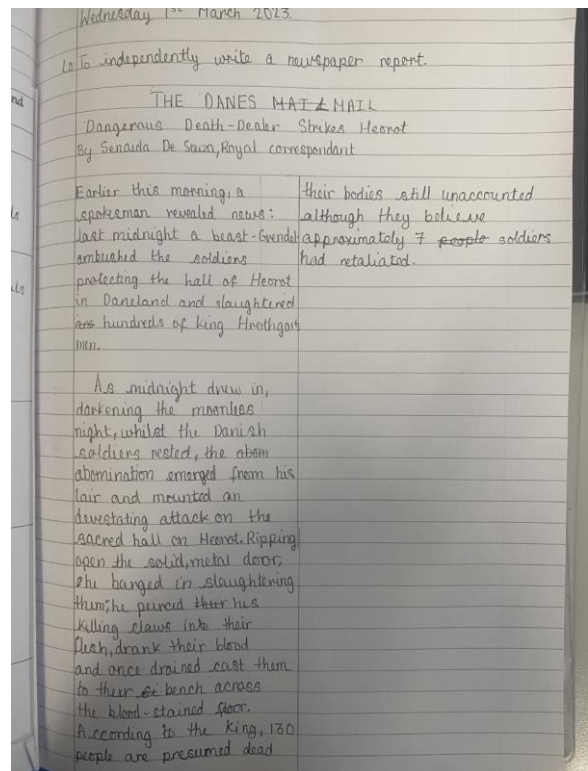 Wednesday 1st March 2023.
Lo To independently write a newspaper report.
THE DANES MAIL MAIL
Dangerous Death-Dealer Strikes Heorot
By Senaida De Souza, Royal correspondant
Earlier this morning, a
spokesman revealed news:
last midnight a beast-Grendel
ambushed the soldiers
protecting the hall of Heorot
in Daneland and slaughtered
hundreds of king Hrothgars
men.
As midnight drew in,
darkening the moonless
night, whilst the Danish
soldiers rested, the abom
abomination emerged from his
lair and mounted an
devestating attack on the
sacred hall on Heorot. Ripping
open the solid, metal door,
he banged in slaughtering
them; he peirced their his
killing claws into their
flesh, drank their blood
and once drained cast them
to their bench across
the blood-stained floor.
According to the King, 130
people are presumed dead
their bodies still unaccounted
although they believe
approximately 7 people soldiers
had retaliated.
nd
ls
als